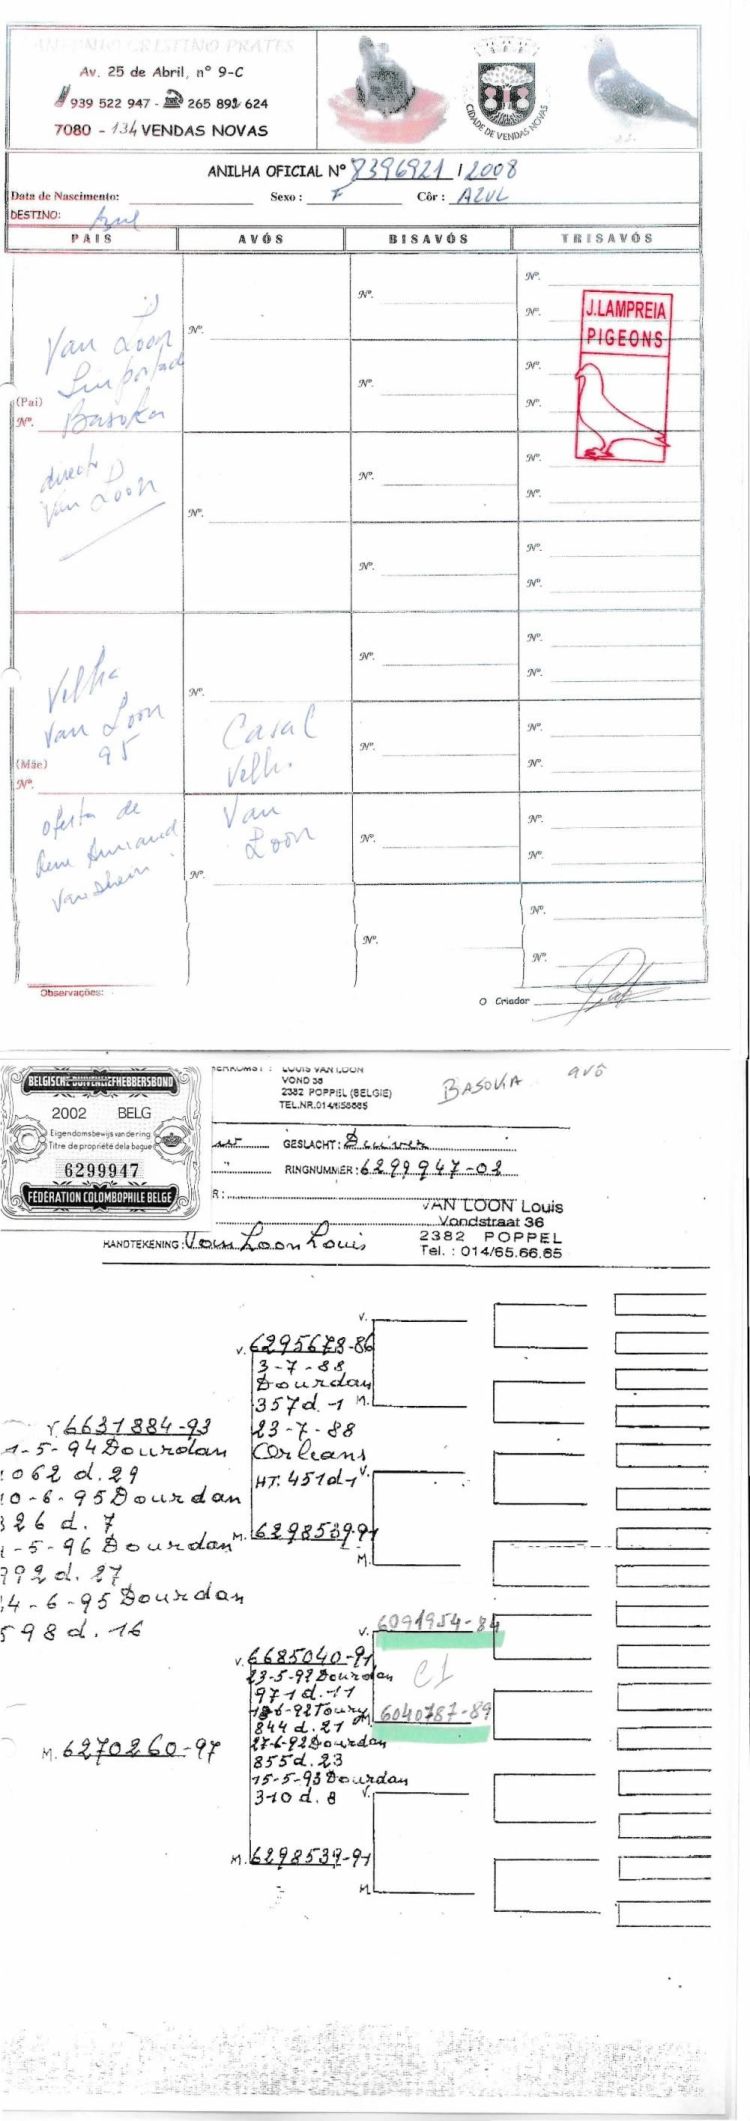 ANTÓNIO CRISTINO PRATES
Av. 25 de Abril, nº 9-C
939 522 947 - 265 892 624
7080 - 134 VENDAS NOVAS
CIDADE DE VENDAS NOVAS
ANILHA OFICIAL Nº 8396921 / 2008
Data de Nascimento: Sexo: F Côr: AZUL
DESTINO: Azul
PAIS AVÓS BISAVÓS TRISAVÓS
J. LAMPREIA
PIGEONS
Van Loon
Basoka
(Pai)
Nº.
directo
Van Loon
Nº.
Nº.
Nº.
Nº.
Nº.
Nº.
Nº.
Nº.
Nº.
Nº.
Nº.
Nº.
Nº.
Nº.
Velha
Van Loon
95
(Mãe)
Nº.
oferta de
Casal
Velh.
Van
Loon
Nº.
Nº.
Nº.
Nº.
Nº.
Nº.
Nº.
Nº.
Nº.
Nº.
Nº.
Nº.
Nº.
Nº.
Observações:
O Criador
BELGISCHE DUIVENLIEFHEBBERSBOND
2002 BELG
Eigendomsbewijs van de ring
Titre de propriété de la bague
6299947
FÉDÉRATION COLOMBOPHILE BELGE
LOUIS VAN LOON
VOND 36
2382 POPPEL (BELGIE)
BASOKA avô
GESLACHT: Duiver
RINGNUMMER: 6299947-02
VAN LOON Louis
Vondstraat 36
2382 POPPEL
Tel. : 014/65.66.65
HANDTEKENING: Van Loon Louis
V. 6295678-86
3-7-88
Dourdan
357d.-1
23-7-88
Orleans
HT: 451d-1
M. 6298539-91
V. 6631884-93
1-5-94 Dourdan
1062 d. 29
10-6-95 Dourdan
326 d. 7
1-5-96 Dourdan
992 d. 27
4-6-95 Dourdan
598 d. 16
V. 6091954-84
C1
M. 6040787-89
V. 6685040-91
23-5-92 Dourdan
971 d.-11
844 d. 21
27-6-92 Dourdan
855d. 23
15-5-93 Dourdan
310 d. 8
M. 6270260-97
M. 6298539-91
V.
M.
V.
M.
V.
M.